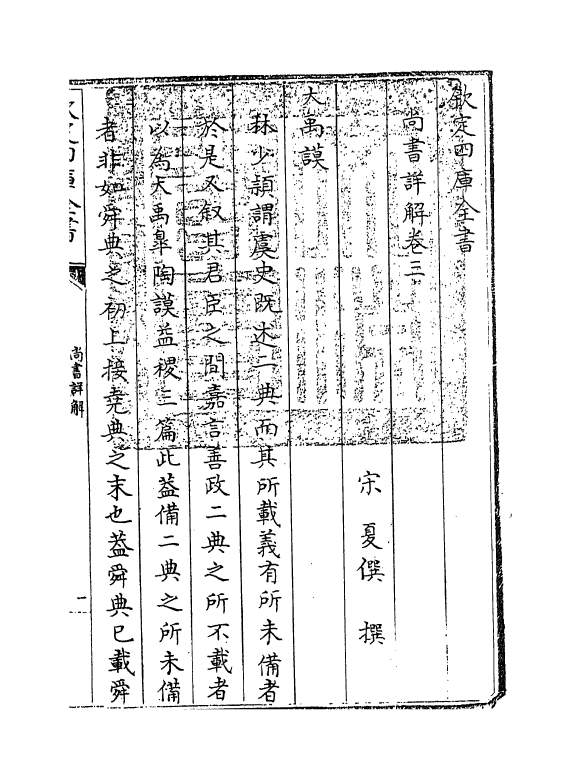 欽定四庫全書
尚書詳解卷三
宋 夏僎 撰
大禹謨
林少頴謂虞史既述二典而其所載義有所未備者
於是又叙其君臣之間嘉言善政二典之所不載者
以為大禹臯陶謨益稷三篇此葢備二典之所未備
者非如舜典之初上接堯典之末也葢舜典已載舜
欽定四庫全書
尚書詳解
一